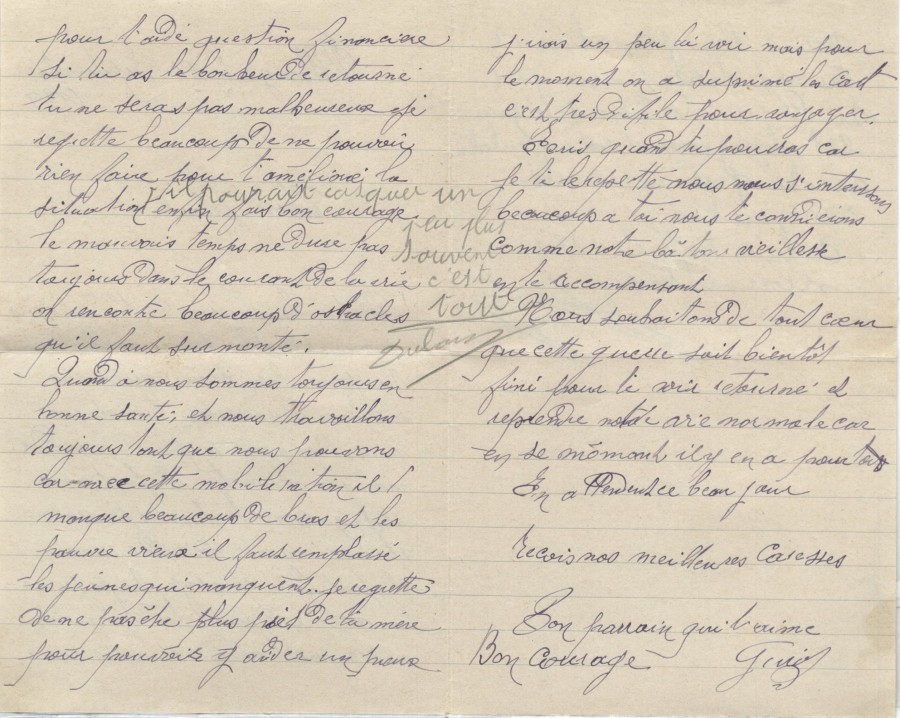 pour t'aidé question financiere
si tu as le bonheur de retourné
tu ne seras pas malheureux je
regrette beaucoup de ne pouvoir
rien faire pour t'améliorer la
situation enfin fais bon courage
le mauvais temps ne dure pas
toujours dans le courant de la vie
on rencontre beaucoup d'ostacles
qu'il faut surmonté.
Quand à nous sommes toujours en
bonne santé; et nous travaillons
toujours tant que nous pouvons
car avec cette mobilisation il
manque beaucoup de bras et les
pauvre vieux il faut remplassé
les jeunes qui manquent. je regrette
de ne pas être plus près de ta mère
pour pouvoir y aider un peux
pourait casquer un
peu plus
souvent
c'est
tout
j'irais un peu la voir mais pour
le moment on a suprimé les
c'est tres dificile pour voyager.
Ecris quand tu pourras car
je te le repette nous nous s'interesson
beaucoup a toi nous te considerions
comme notre bâton vieillesse
en te recompensant
Nous souhaitons de tout cœur
que cette guerre soit bientôt
fini pour te voir retourné et
reprendre notre vie normale car
en se moment il y en a pour tous
En attendent ce beau jour
recois nos meilleures caresses
Ton parrain qui t'aime
Bon Courage